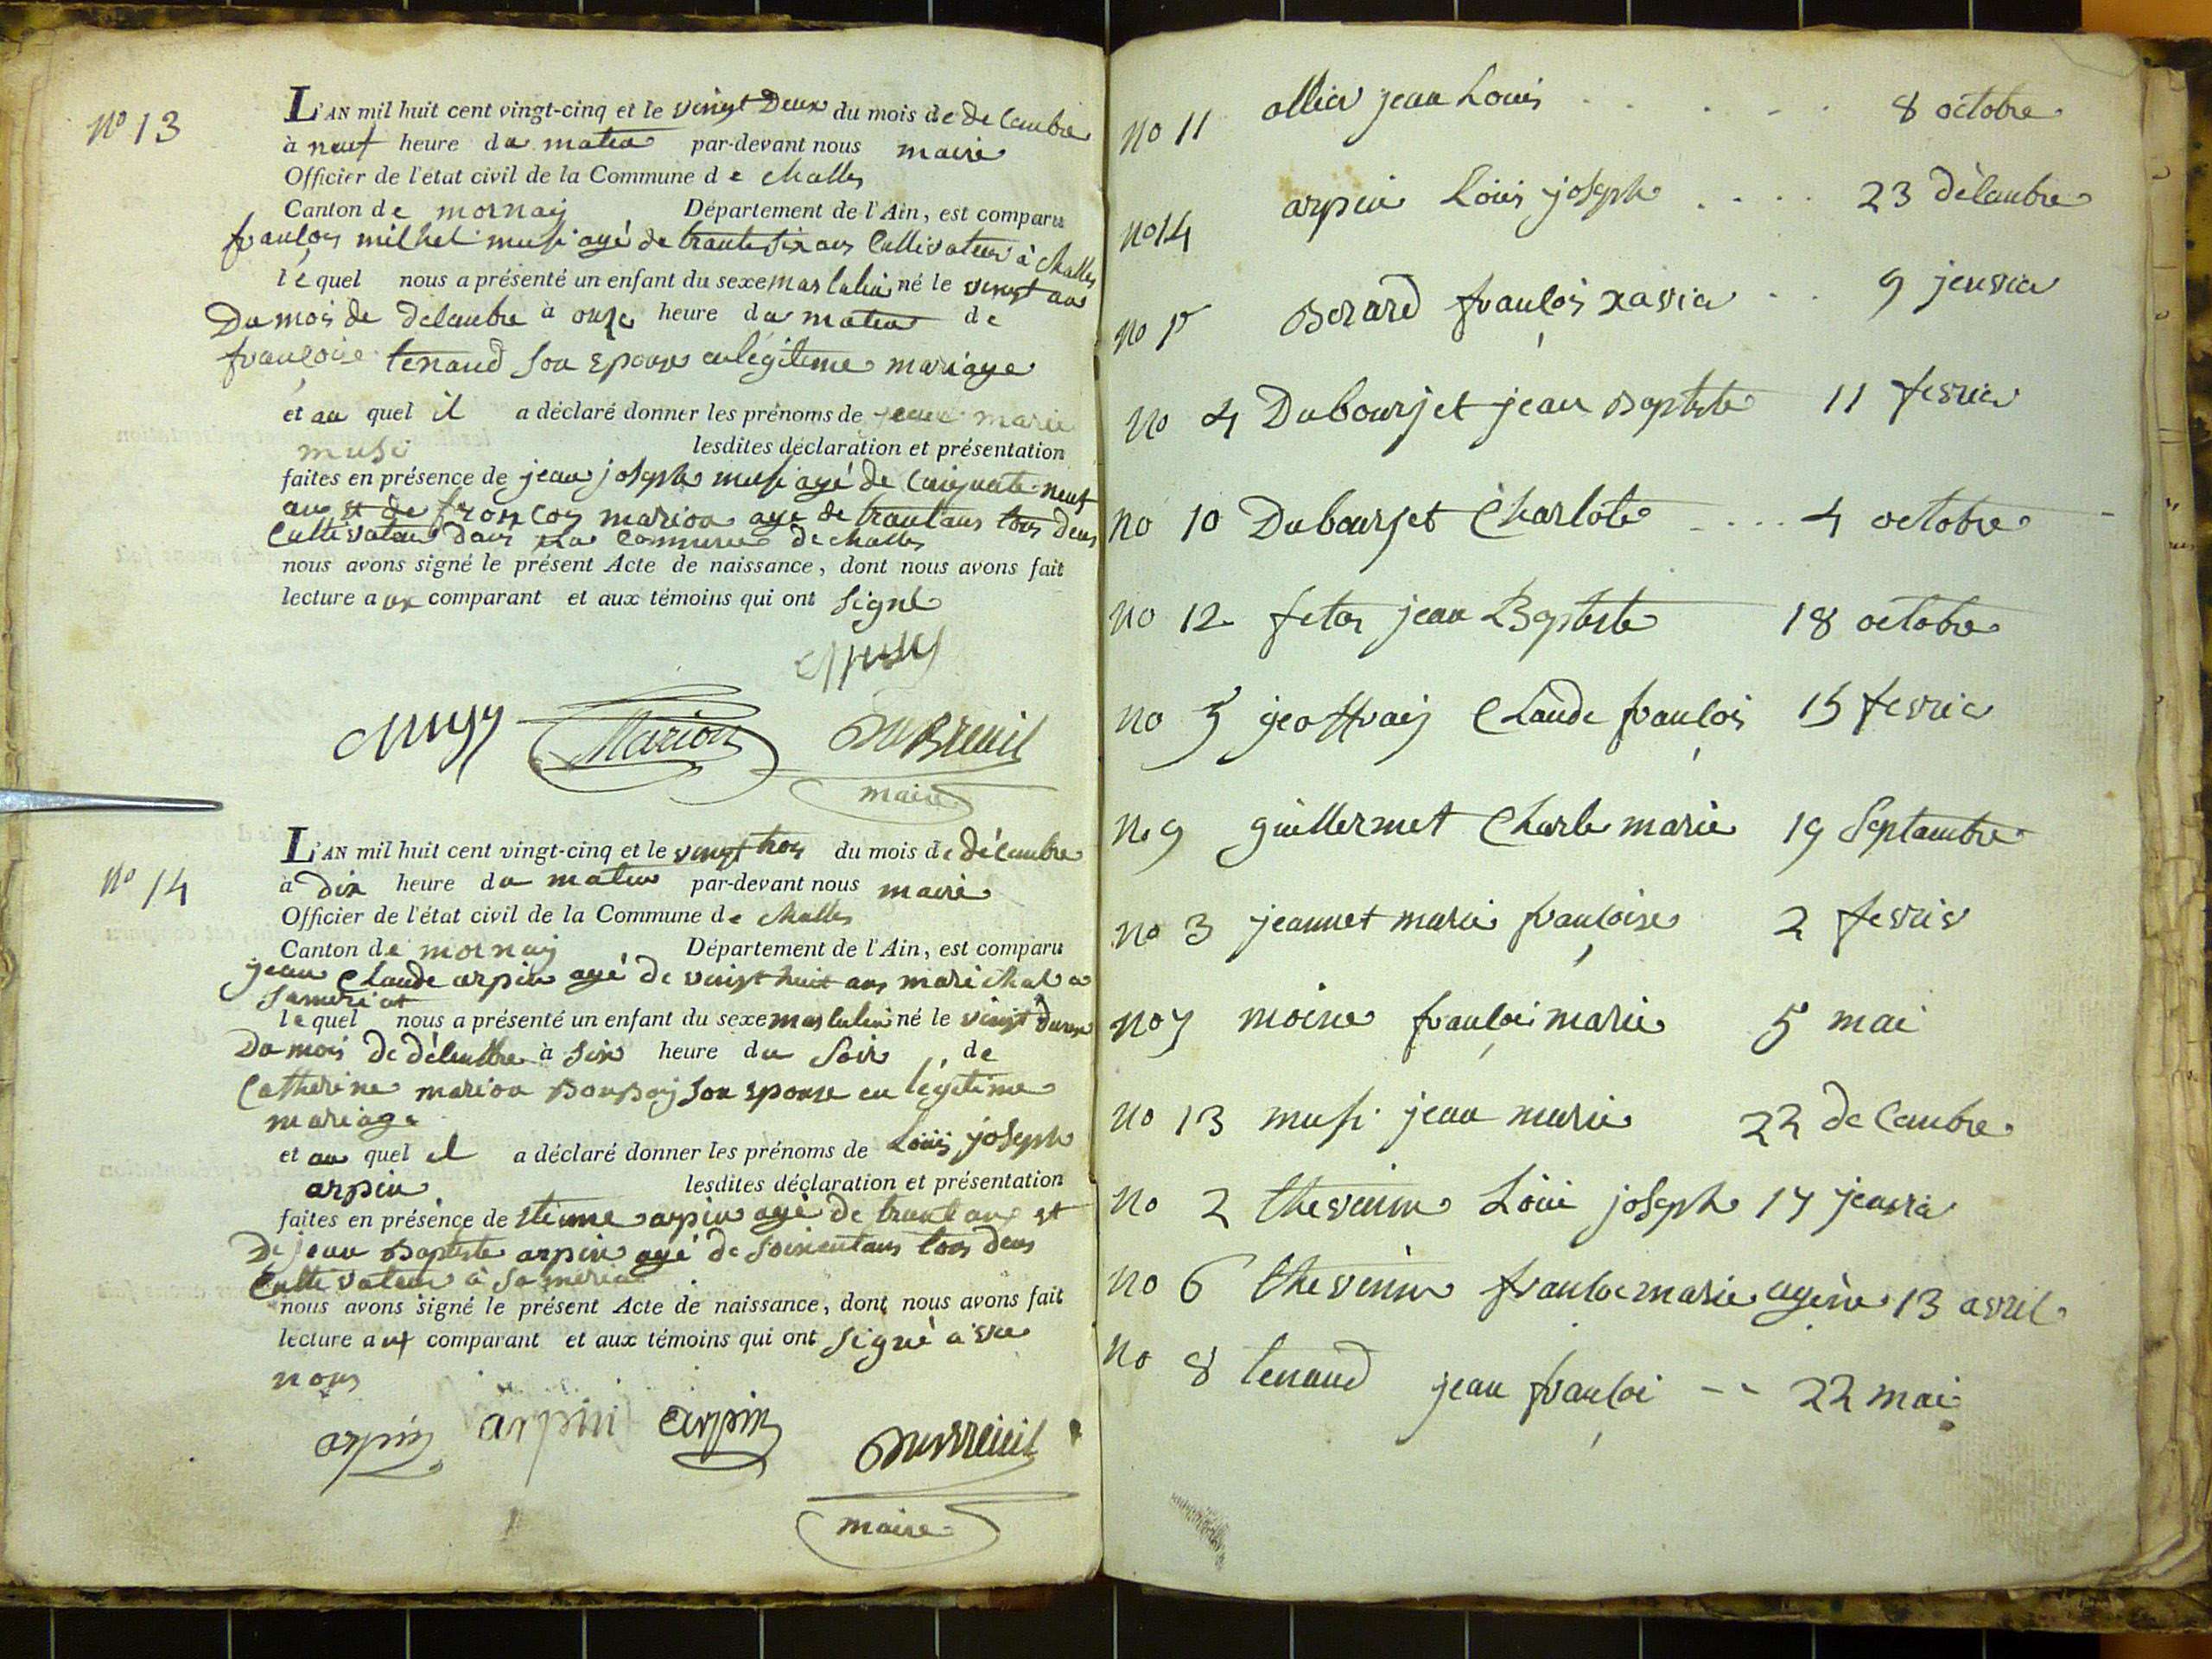 no 13
L'AN mil huit cent vingt-cinq et le vingt Deux du mois de decembre
à neuf heure du matin par-devant nous maire
Officier de l'état civil de la Commune de challes
Canton de mornay Département de l'Ain, est comparu
françois michel musi agé de trante six ans Cultivateur à challes
lequel nous a présenté un enfant du sexe masculin né le vingt un
Du mois de decembre à onze heure du matin de
françoise tenand son Epouse en légitime mariage
et au quel il a déclaré donner les prénoms de jean marie
musi lesdites déclaration et présentation
faites en présence de jean joseph musi agé de Cinquante neuf
ans et de françois marion agé de trant ans tous deux
Cultivateur dans la Commune de challes
nous avons signé le présent Acte de naissance, dont nous avons fait
lecture aux comparant et aux témoins qui ont signé
musy
musy Marion Dubreuil
maire
no 14
L'AN mil huit cent vingt-cinq et le vingt trois du mois de décembre
à Dix heure du matin par-devant nous maire
Officier de l'état civil de la Commune de challes
Canton de mornay Département de l'Ain, est comparu
jean Claude arpin agé de vingt huit ans marichal a
Sameriat
lequel nous a présenté un enfant du sexe masculin né le vingt deux
Du mois de décembre à six heure du soir de
Catherine marion Bonboy son Epouse en légitime
mariage
et au quel il a déclaré donner les prénoms de Louis joseph
arpin lesdites déclaration et présentation
faites en présence de Etienne arpin agé de trant ans et
De jean Baptiste arpin agé de soixent ans tous deux
Cultivateur à Sameria
nous avons signé le présent Acte de naissance, dont nous avons fait
lecture aux comparant et aux témoins qui ont signé avec
nous
arpin arpin arpin Dubreuil
maire
no 11 allier jean Louis 8 octobre
no 14 arpin Louis joseph 23 décembre
no 1er Berard françois xavier 9 jenvier
no 4 Dubourjet jean Baptiste 11 fevrier
no 10 Dubourjet Charlote 4 octobre
no 12 fetas jean Baptiste 18 octobre
no 5 geoffray Claude françois 15 fevrier
no 9 guillermet Charle marie 19 Septambre
no 3 jeannet marie françoise 2 fevrier
no 7 moine françoi marie 5 mai
no 13 musi jean marie 22 decembre
no 2 thevenin Loui joseph 17 jenvier
no 6 thevenin francoe marie agène 13 avril
no 8 tenand jean françoi 22 mai